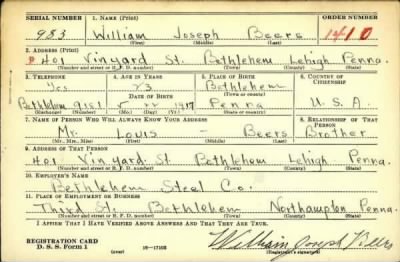 SERIAL NUMBER 1. NAME (Print) ORDER NUMBER
983 William Joseph Beers 1410
(First) (Middle) (Last)
2. ADDRESS (Print)
401 Vinyard St. Bethlehem Lehigh Penna.
(Number and street or R. F. D. number) (Town) (County) (State)
3. TELEPHONE 4. AGE IN YEARS 5. PLACE OF BIRTH 6. COUNTRY OF CITIZENSHIP
Yes 23 Bethlehem
DATE OF BIRTH (Town or county)
Bethlehem 9181 5 22 1917 Penna U.S.A.
(Exchange) (Number) (Mo.) (Day) (Yr.) (State or country)
7. NAME OF PERSON WHO WILL ALWAYS KNOW YOUR ADDRESS 8. RELATIONSHIP OF THAT PERSON
Mr. Louis - Beers Brother
(Mr., Mrs., Miss) (First) (Middle) (Last)
9. ADDRESS OF THAT PERSON
401 Vinyard St. Bethlehem Lehigh Penna.
(Number and street or R. F. D. number) (Town) (County) (State)
10. EMPLOYER'S NAME
Bethlehem Steel Co.
11. PLACE OF EMPLOYMENT OR BUSINESS
Third St. Bethlehem Northampton Penna.
(Number and street or R. F. D. number) (Town) (County) (State)
I AFFIRM THAT I HAVE VERIFIED ABOVE ANSWERS AND THAT THEY ARE TRUE.
REGISTRATION CARD
D. S. S. Form 1 (over) 16-17105 William Joseph Beers
(Registrant's signature)